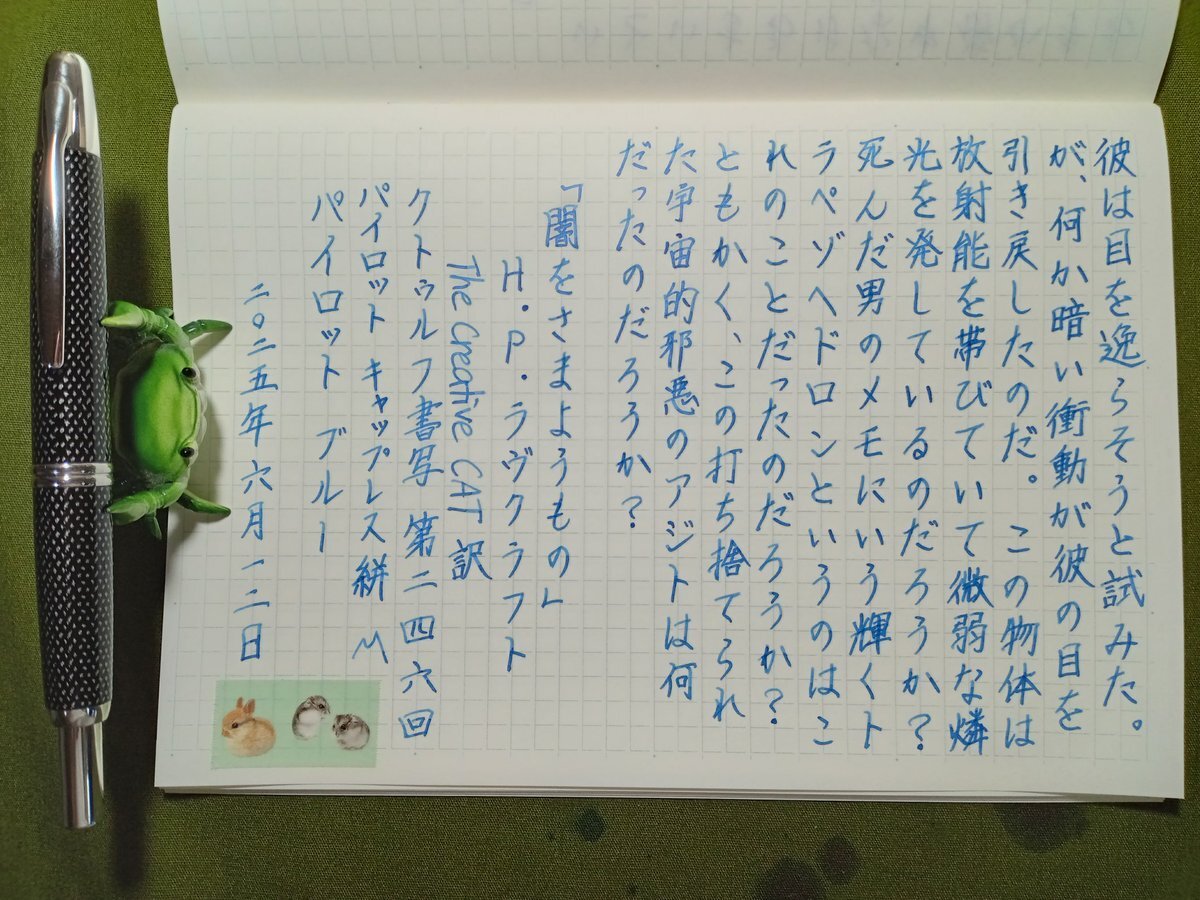 彼は目を逸らそうと試みた。
が、何か暗い衝動が彼の目を
引き戻したのだ。この物体は
放射能を帯びていて微弱な燐
光を発しているのだろうか?
死んだ男のメモにいう輝くト
ラペゾヘドロンというのはこ
れのことだったのだろうか?
ともかく、この打ち捨てられ
た宇宙的邪悪のアジトは何
だったのだろうか?
「闇をさまようもの」
H・P・ラヴクラフト
The Creative CAT 訳
クトゥルフ書写 第二四六回
パイロット キャップレス絣 M
パイロット ブルー
二〇二五年六月一二日